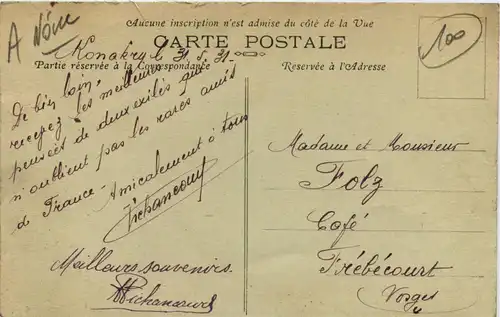 A Nóir
Aucune inscription n'est admise du côté de la Vue
CARTE POSTALE
Partie réservée à la Correspondance
Réservée à l'Adresse
100
Konakry le 31.5.31-
De bien loin,
recevez les meilleures
pensées de deux exilés qui
n'oublient pas les rares amis
de France - Amicalement à tous
Michancourt
Meilleurs souvenirs.
Michancourt
Madame et Monsieur
Folz
Café
Frébécourt
Vosges